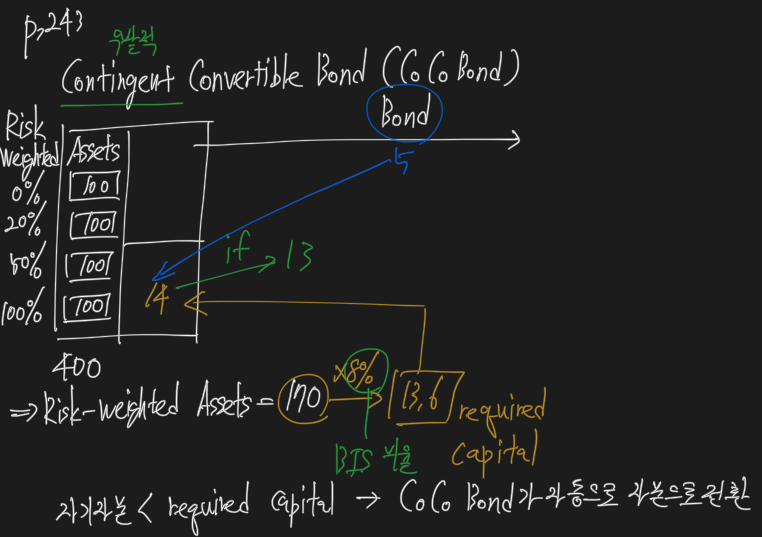 p.243
우발적
Contingent Convertible Bond (CoCo Bond)
Bond
Risk
Weighted
Assets
0% 100
20% 100
50% 100
100% 100
5
14
if 13
400
⇒ Risk-weighted Assets = 170 ×8% → 13.6 required capital
BIS 비율
자기자본 < required capital → CoCo Bond가 자동으로 자본으로 전환